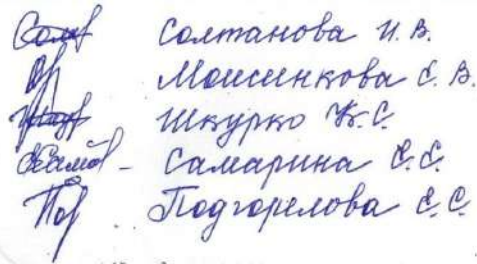 Солтанова И.В.
Моисенкова Е.В.
Шкурко К.С.
Самарина Е.Е.
Подгорелова Е.С.